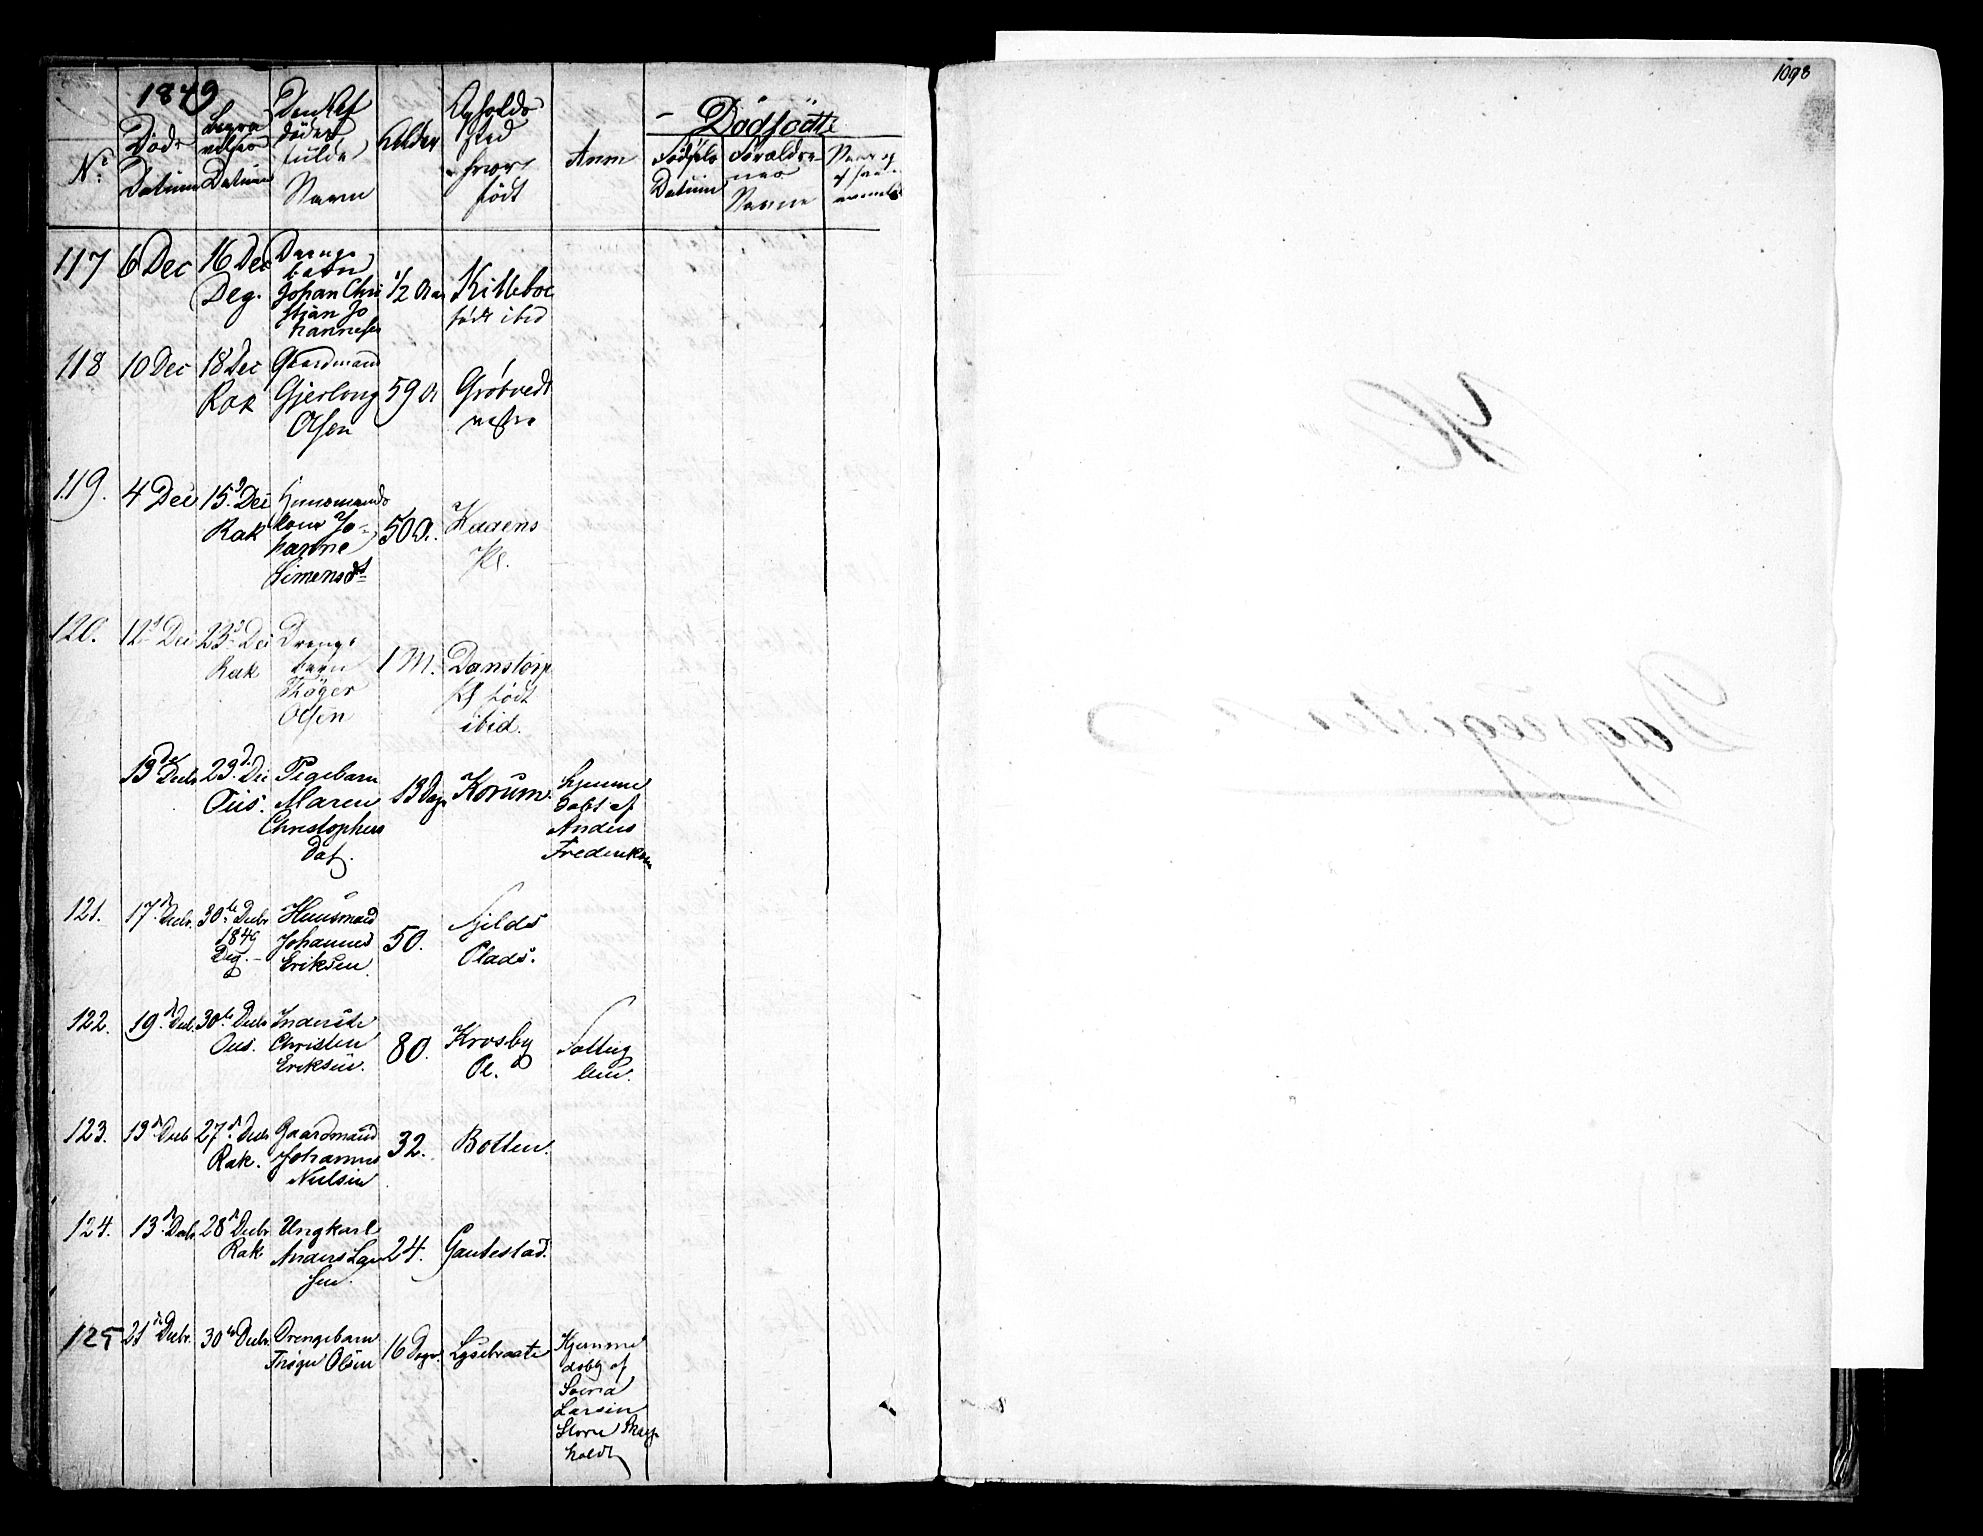 1098
1849
No
Døds
Datum
Begra
velses
Datum
Den Af
dødes
fulde
Navn
Alder
Opholds
sted
hvor
født
Anm
Dødfødte
Fødsels
Datum
Forældre
nes
Navne
117 6 Dec 16 Dec
Deg.
Drenge
barn
Johan Chri
stian Jo
hannesen
1/2 Aar
Killeboe
født ibid
118 10 Dec 18 Dec
Rak
Gaardmand
Gjerlong
Olsen
59 A
Grøtvedt
119. 4 Dec 15de Dec
Rak
Huusmands
kone Jo-
hanne
Simensdt
50 A.
Kaaens
Pl.
120. 12te Dec 23de Dec
Rak
Drenge
barn
Thøger
Olsen
1 M.
Danstorp
født
ibid.
13de Decbr 23de Dec
Ous.
Pigebarn
Maren
Christophers
Dat.
13 Dage
Korum.
hjemme
døbt af
Anders
Frederiksen
121. 17de Decbr. 30te Decbr
1849
Deg.-
Huusmand
Johannes
Eriksen.
50.
Fjelds
Plads.
122. 19de Decbr. 30te Decbr
Ous.
Inderste
Christen
Eriksen.
80.
Krosby
Pl.
Fattig
lem.
123. 13de Decbr 27de Decbr
Rak.
Gaardmand
Johannes
Nielsen
32.
Botten.
124. 13de Decbr 28de Decbr
Rak
Ungkarl
Anders Lar
sen.
24.
Gautestad.
125 21de Decbr. 30te Decbr
Drengebarn
Thøger Olsen
16 Dage.
Lysebraate
Hjemme
døbt af
Svend
Larsen
Store
holdt
Dagsregister